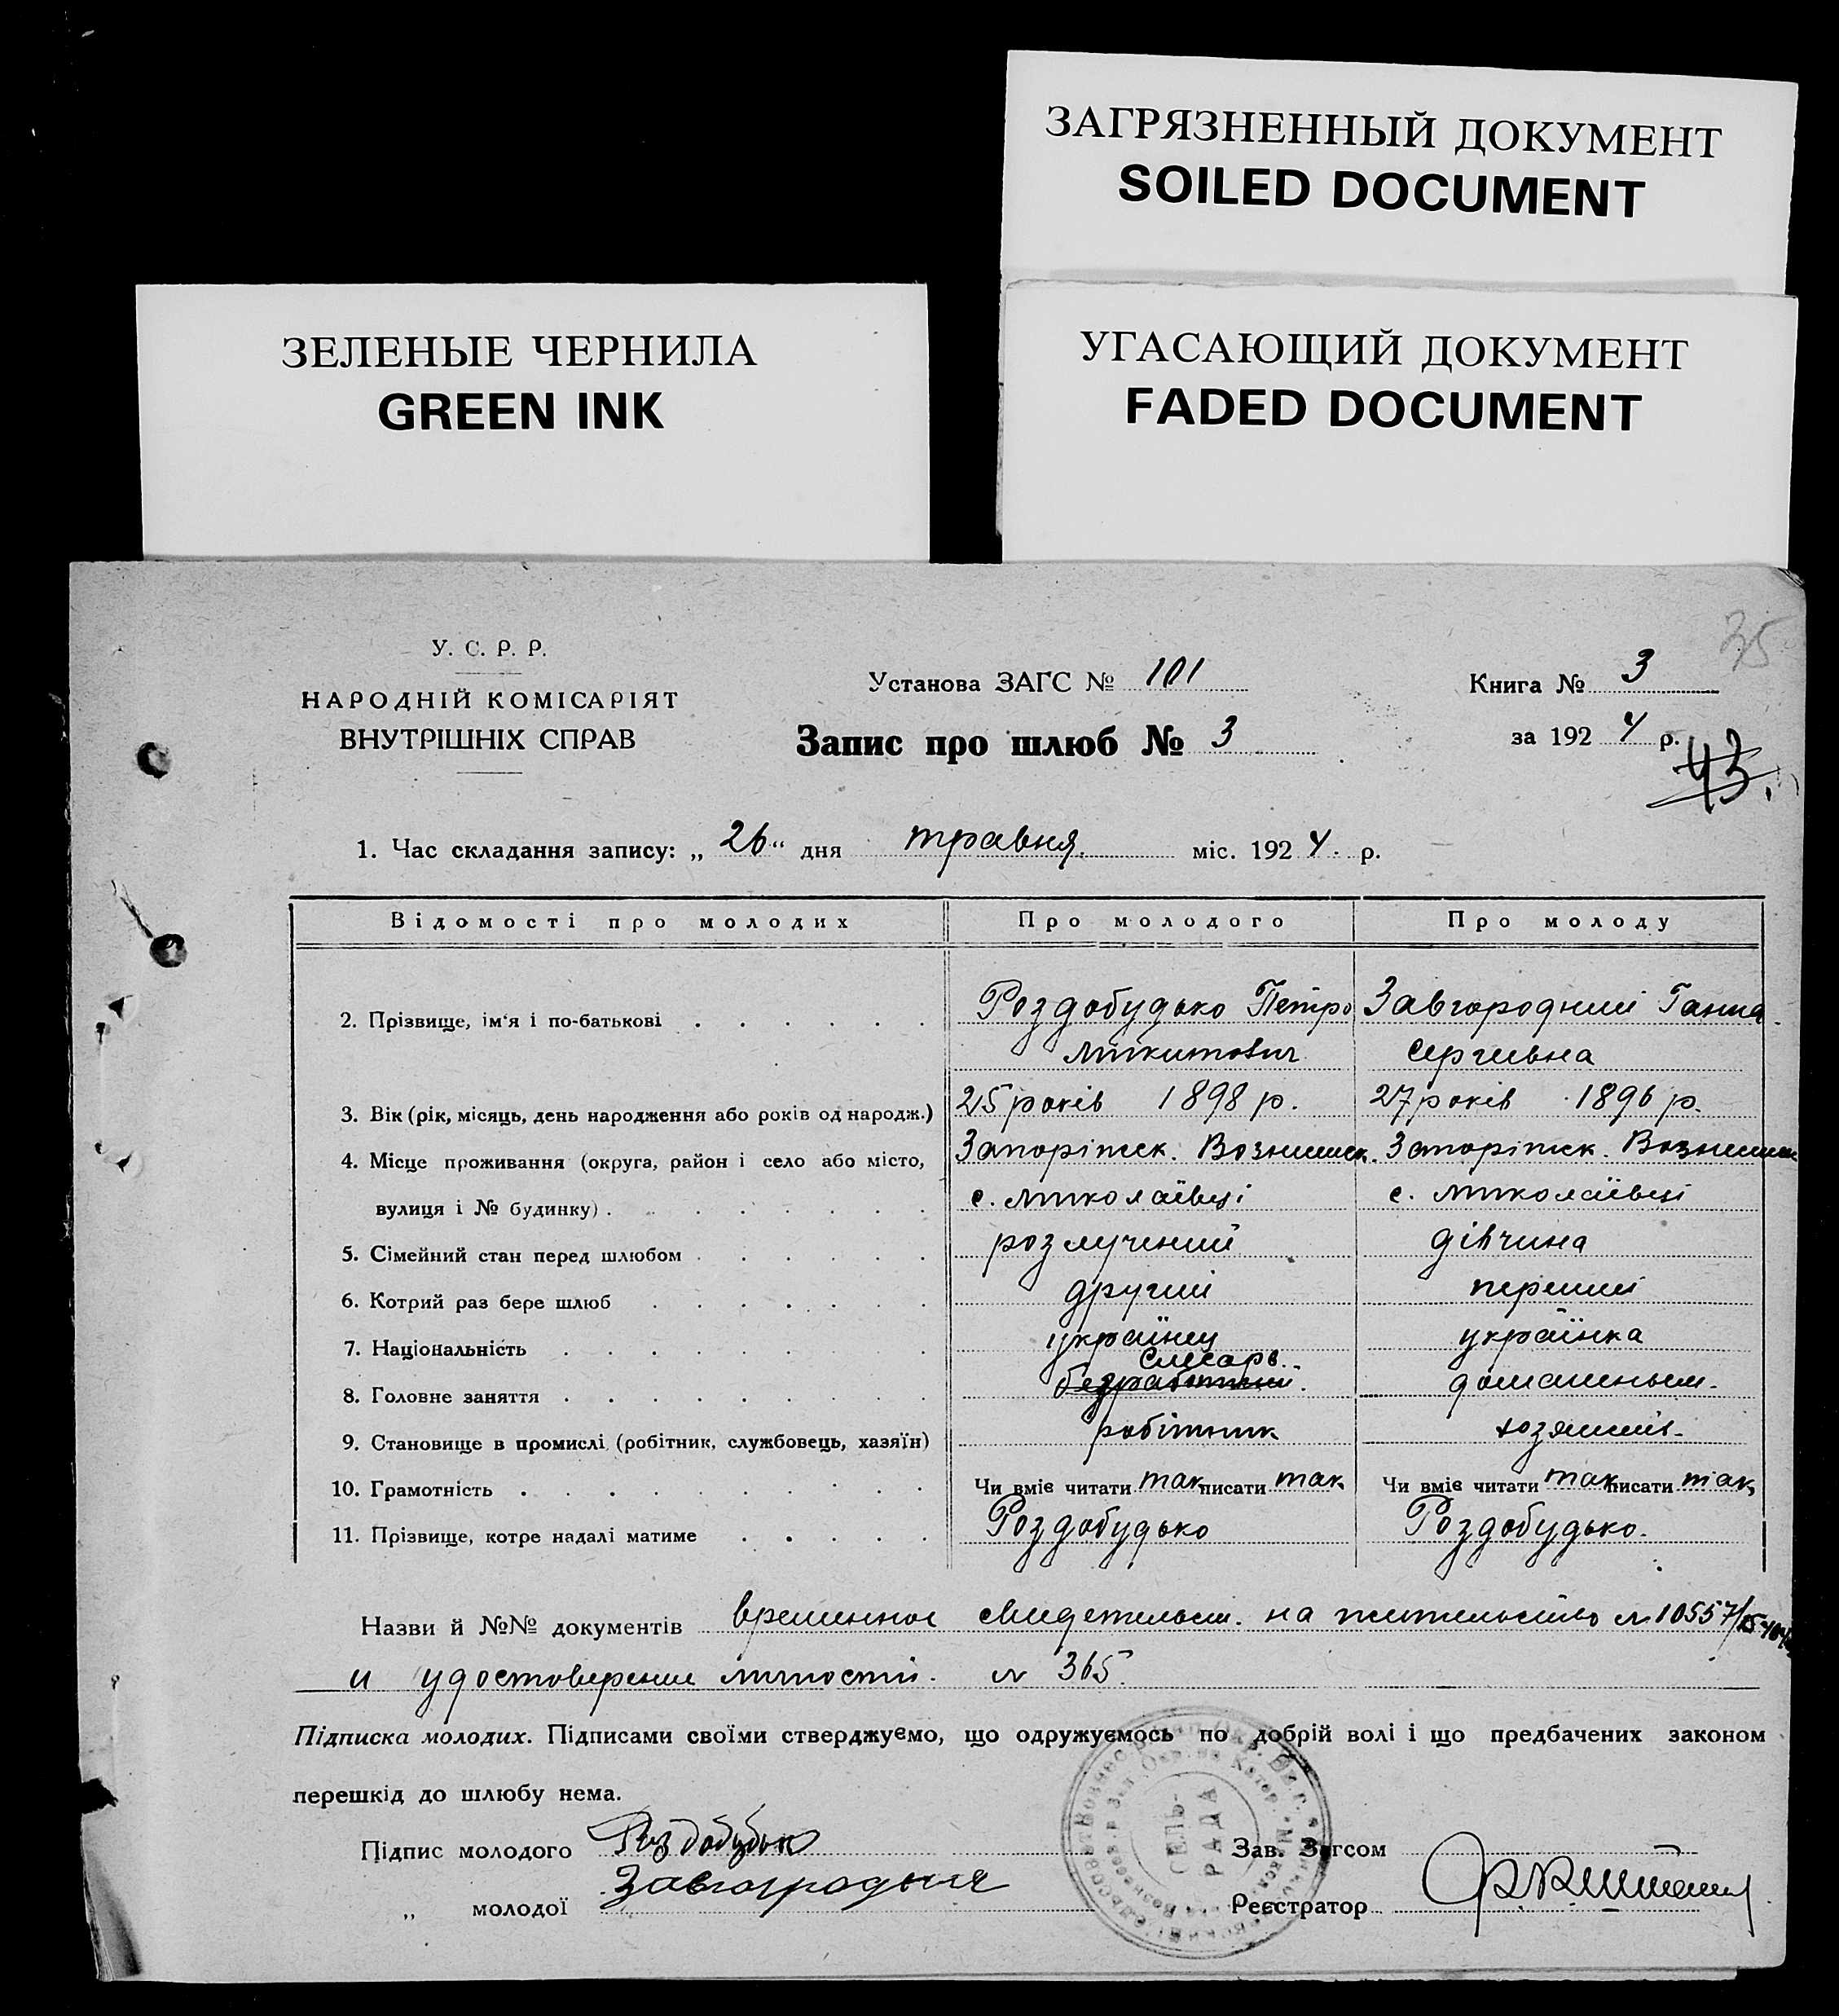 ЗАГРЯЗНЕННЫЙ ДОКУМЕНТ
SOILED DOCUMENT
ЗЕЛЕНЫЕ ЧЕРНИЛА
GREEN INK
УГАСАЮЩИЙ ДОКУМЕНТ
FADED DOCUMENT
35
У. С. Р. Р.
НАРОДНІЙ КОМІСАРІЯТ
ВНУТРІШНІХ СПРАВ
Установа ЗАГС № 101
Запис про шлюб № 3
Книга № 3
за 1924 р.
43.
1. Час складання запису: „26“ дня травня міс. 1924. р.
Відомості про молодих Про молодого Про молоду
2. Прізвище, ім‘я і по-батькові Роздобудько Петро Завгородний Ганна
Микитович Сергиевна
3. Вік (рік, місяць, день народження або років од народж.) 25 років 1898 р. 27 років 1896 р.
4. Місце проживання (округа, район і село або місто, Запоріжск. Запоріжск.
вулиця і № будинку) с. Миколаївці с. Миколаївці
5. Сімейний стан перед шлюбом розлучений дівчина
6. Котрий раз бере шлюб другий перший
7. Національність українец українка
слесарь.
8. Головне заняття безработний. домашным.
9. Становище в промислі (робітник, службовець, хазяїн) робітник
10. Грамотність Чи вміє читати так писати так Чи вміє читати так писати так
11. Прізвище, котре надалі матиме Роздобудько Роздобудько.
Назви й №№ документів временное свидетельст. на жительство № 10557/
и удостоверение личности. № 365.
Підписка молодих. Підписами своїми стверджуємо, що одружуємось по добрій волі і що предбачених законом
перешкід до шлюбу нема.
Підпис молодого Роздобудько
„ молодої Завгородняя
СЕЛЬ-
РАДА
Зав. Загсом
Реєстратор